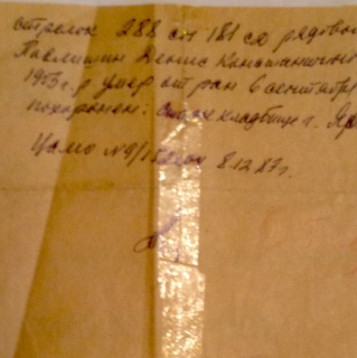 стрелок 288 сп 181 сд рядовой
Павлишин Денис Константинович
г.р умер от ран 6 сентября
похоронен: кладбище г.
Цамо № 9/ 8.12.87г.